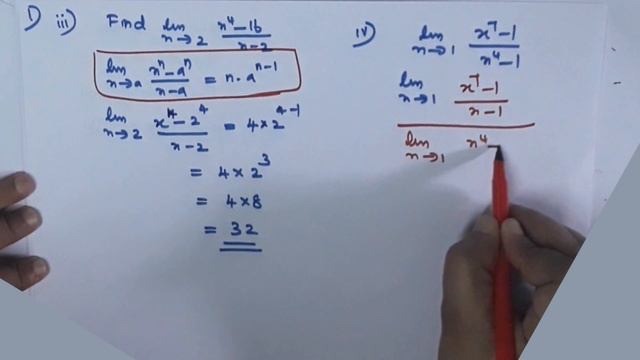 1) iii) Find lim n→2 n⁴-16/n-2
lim n→a nⁿ-aⁿ/n-a = n·aⁿ⁻¹
lim n→2 x⁴-2⁴/n-2 = 4×2⁴⁻¹
= 4×2³
= 4×8
= 32
iv) lim n→1 x⁷-1/n⁴-1
lim n→1 x⁷-1/n-1
lim n→1 n⁴-